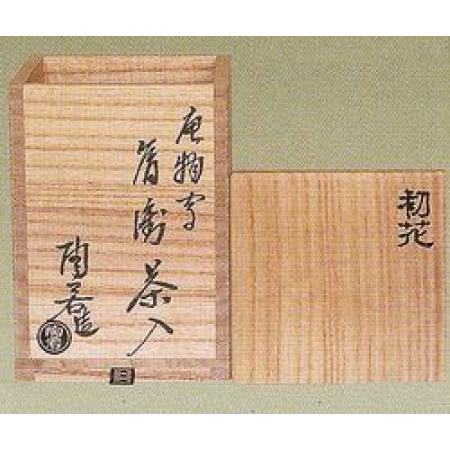 初花
唐物写
肩衝茶入
陶造